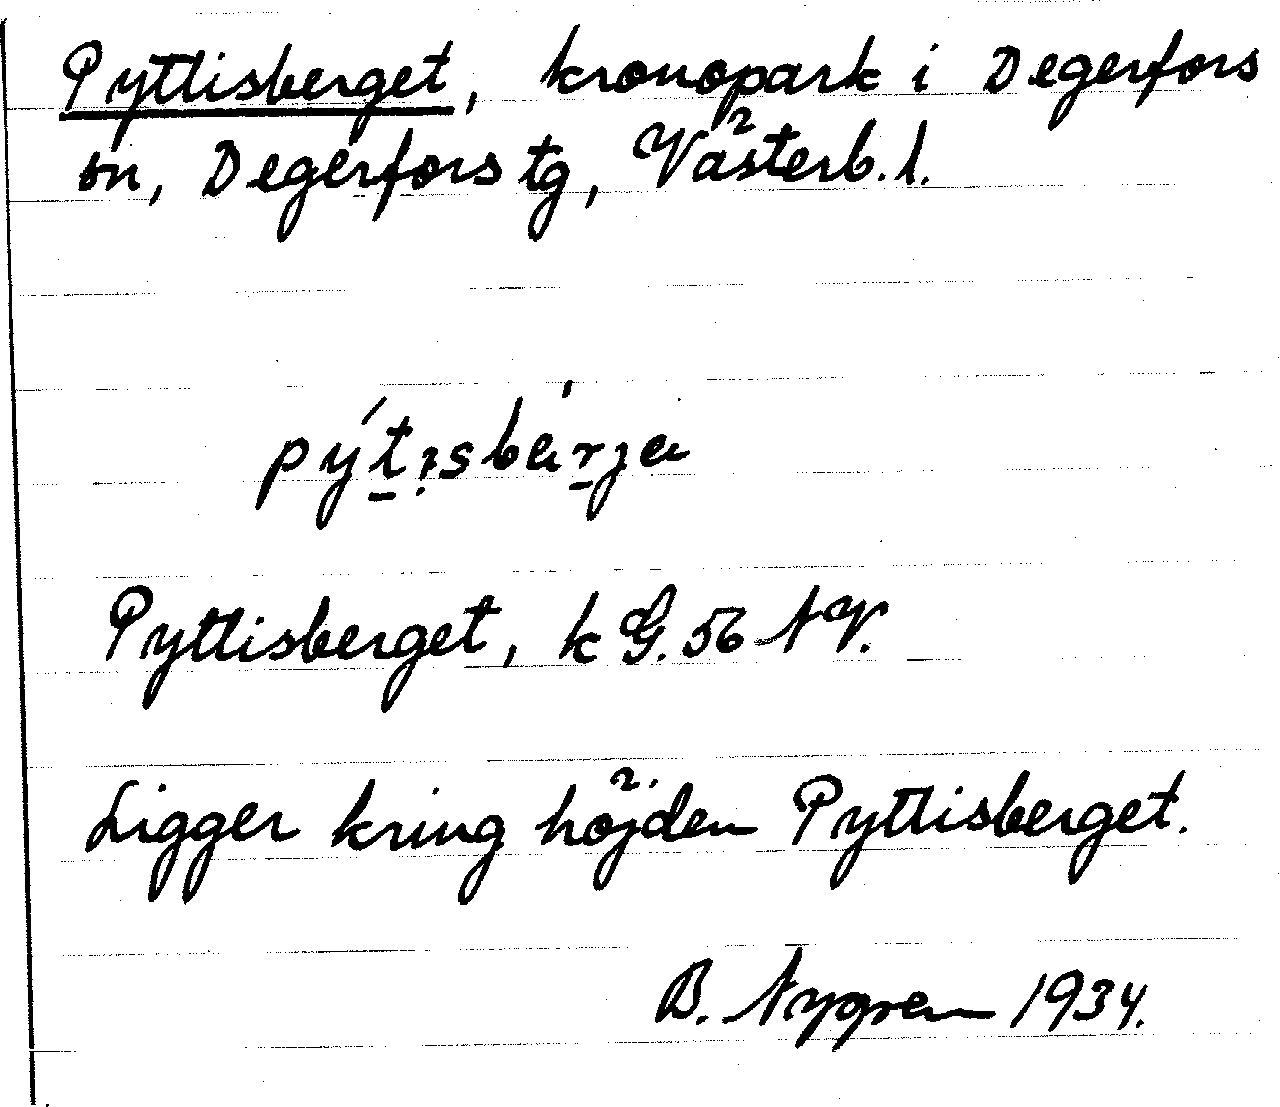 Pyttlisberget, kronopark i Degerfors
sn, Degerfors tg, Västerb. l.
pýt̠ı̣sbár̠ja
Pyttlisberget, k G. 56 NV.
Ligger kring höjden Pyttlisberget.
B. Nygren 1934.